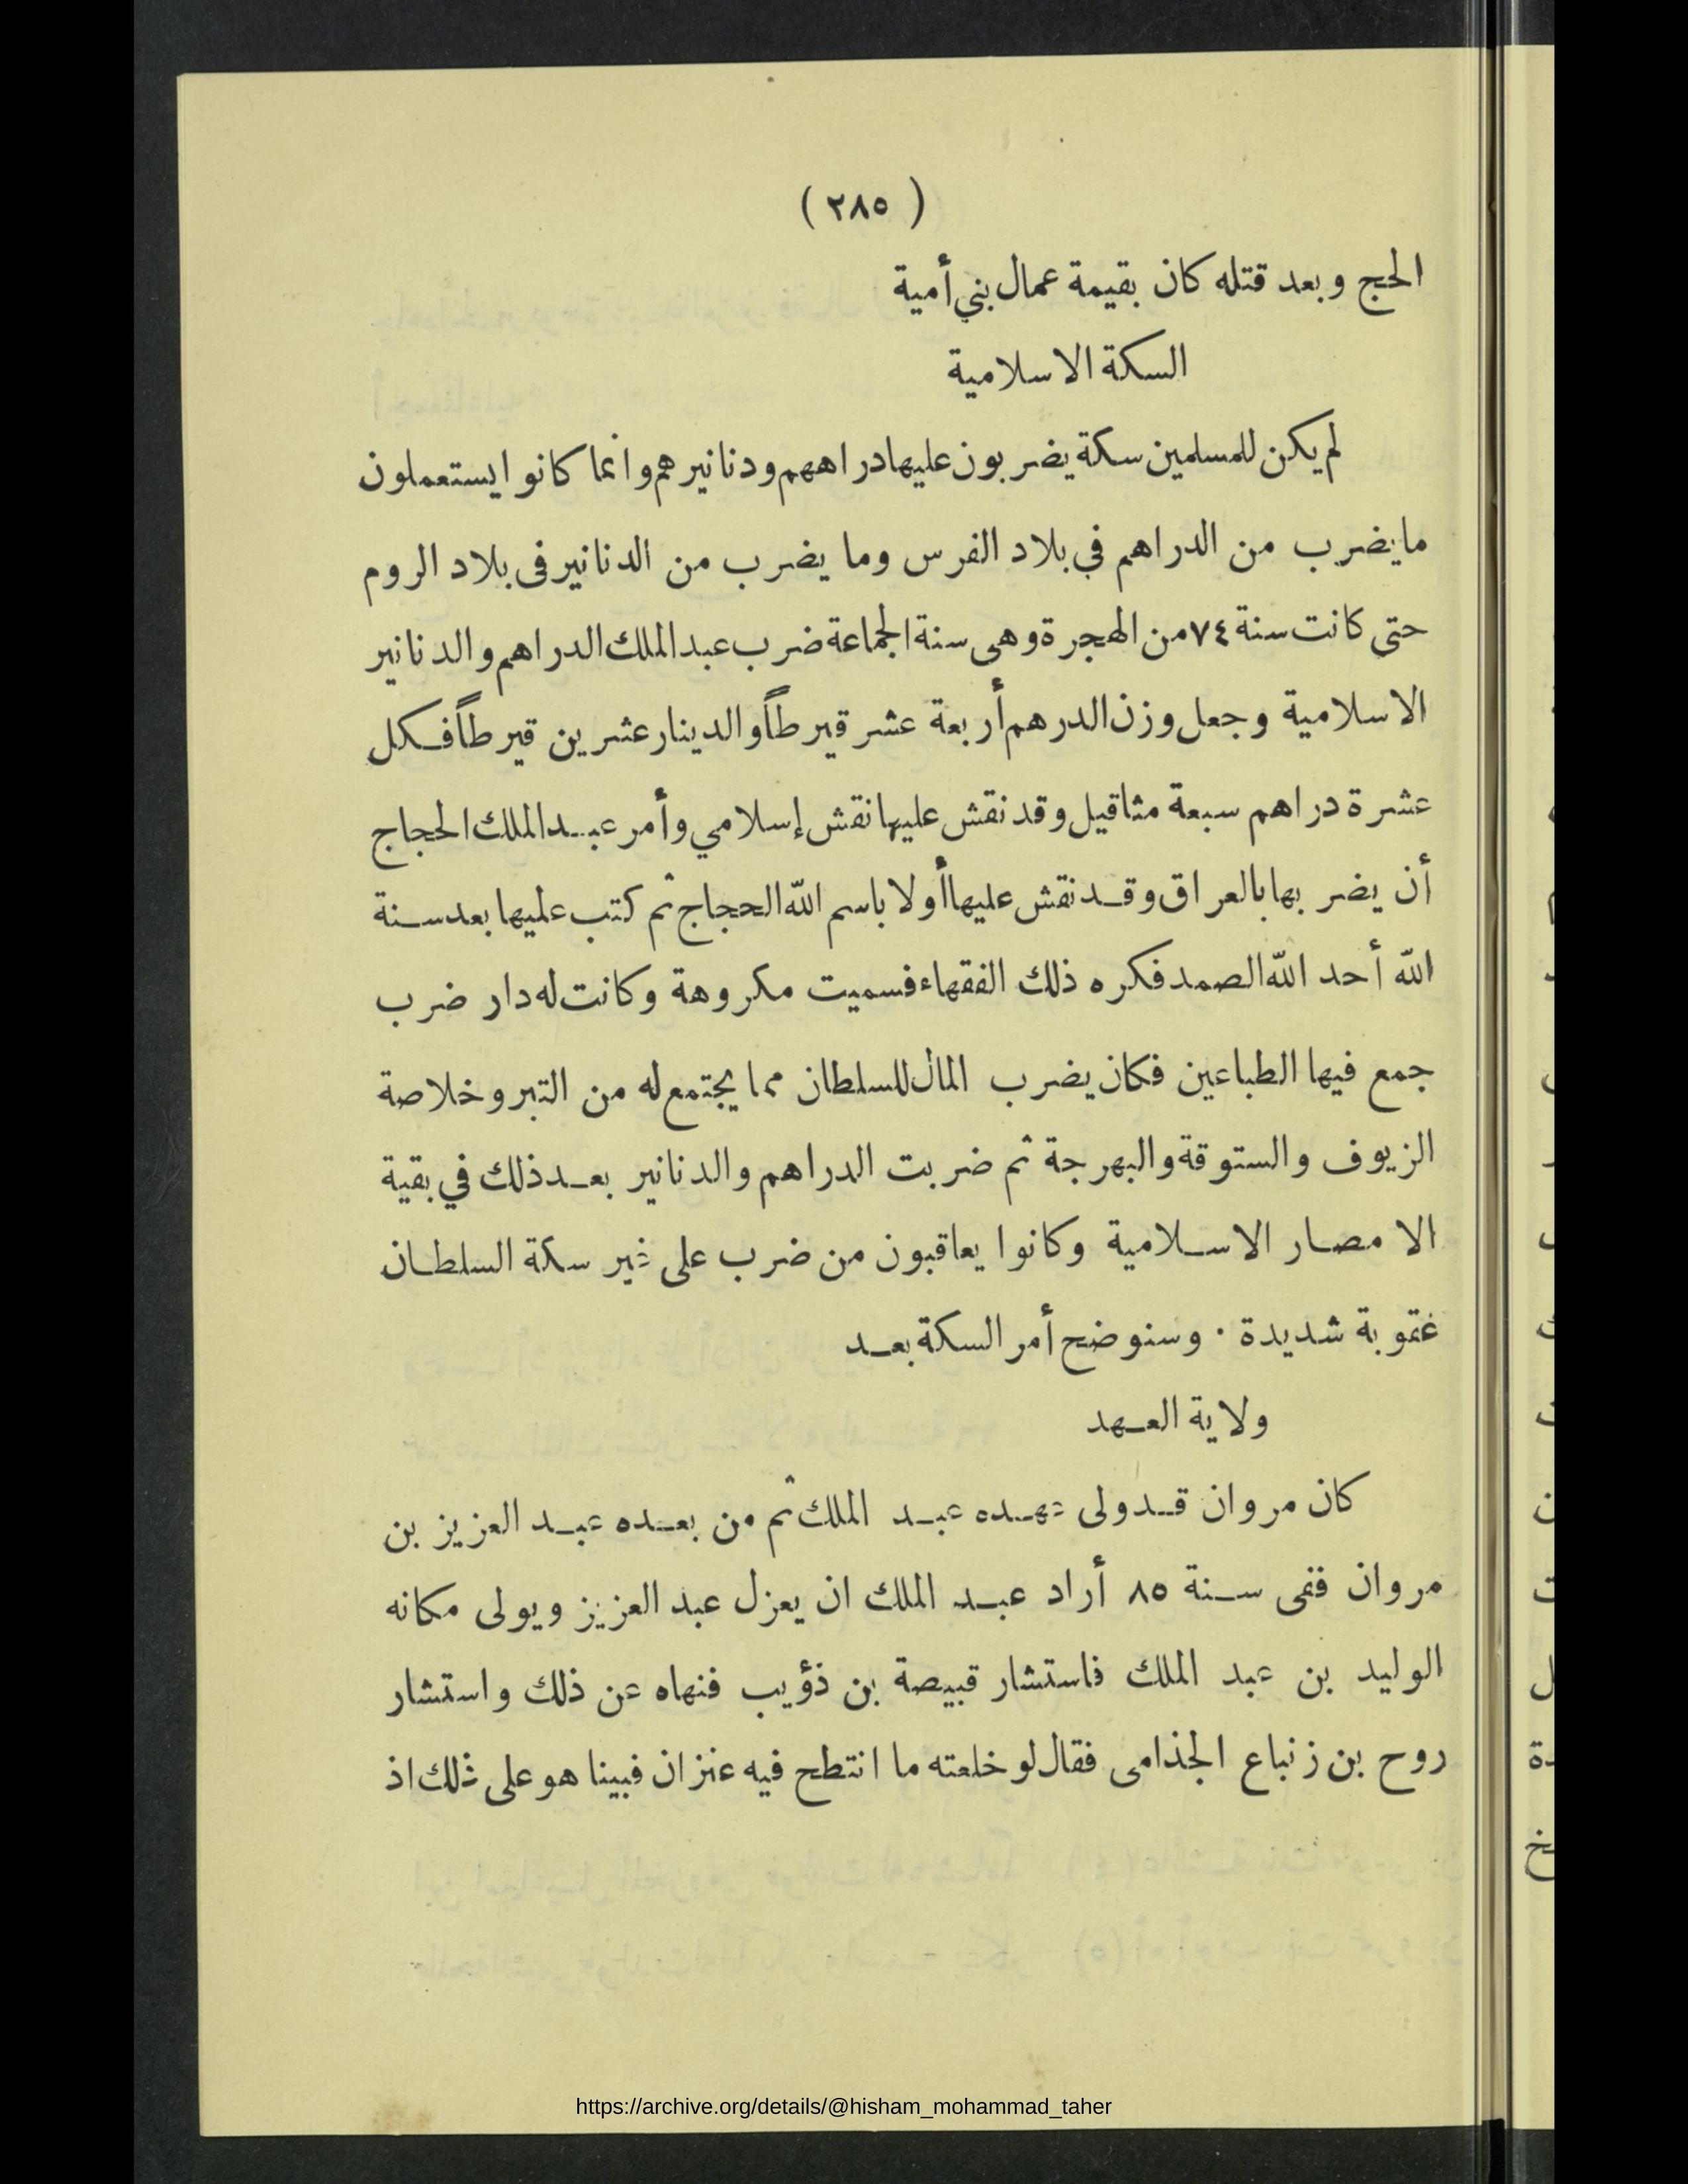 ( ٢٨٥ )
الحج وبعد قتله كان بقيمة عمال بني أمية
السكة الاسلامية
لم يكن للمسلمين سكة يضربون عليها دراهمهم ودنانيرهم وانما كانوا يستعملون
ما يضرب من الدراهم في بلاد الفرس وما يضرب من الدنانير فى بلاد الروم
حتى كانت سنة ٧٤ من الهجرة وهى سنة الجماعة ضرب عبد الملك الدراهم والدنانير
الاسلامية وجعل وزن الدرهم أربعة عشر قيرطاً والدينار عشرين قيرطاً فكل
عشرة دراهم سبعة مثاقيل وقد نقش عليها نقش إسلامي وأمر عبد الملك الحجاج
أن يضربها بالعراق وقد نقش عليها أولا باسم الله الحجاج ثم كتب عليها بعد سنة
الله أحد الله الصمد فكره ذلك الفقهاء فسميت مكروهة وكانت له دار ضرب
جمع فيها الطباعين فكان يضرب المال للسلطان مما يجتمع له من التبر وخلاصة
الزيوف والستوقة والبهرجة ثم ضربت الدراهم والدنانير بعد ذلك في بقية
الامصار الاسلامية وكانوا يعاقبون من ضرب على غير سكة السلطان
عقوبة شديدة . وسنوضح أمر السكة بعد
ولاية العهد
كان مروان قد ولى عهده عبد الملك ثم من بعده عبد العزيز بن
مروان ففى سنة ٨٥ أراد عبد الملك ان يعزل عبد العزيز ويولى مكانه
الوليد بن عبد الملك فاستشار قبيصة بن ذؤيب فنهاه عن ذلك واستشار
روح بن زنباع الجذامى فقال لو خلعته ما انتطح فيه عنزان فبينا هو على ذلك اذ
https://archive.org/details/@hisham_mohammad_taher